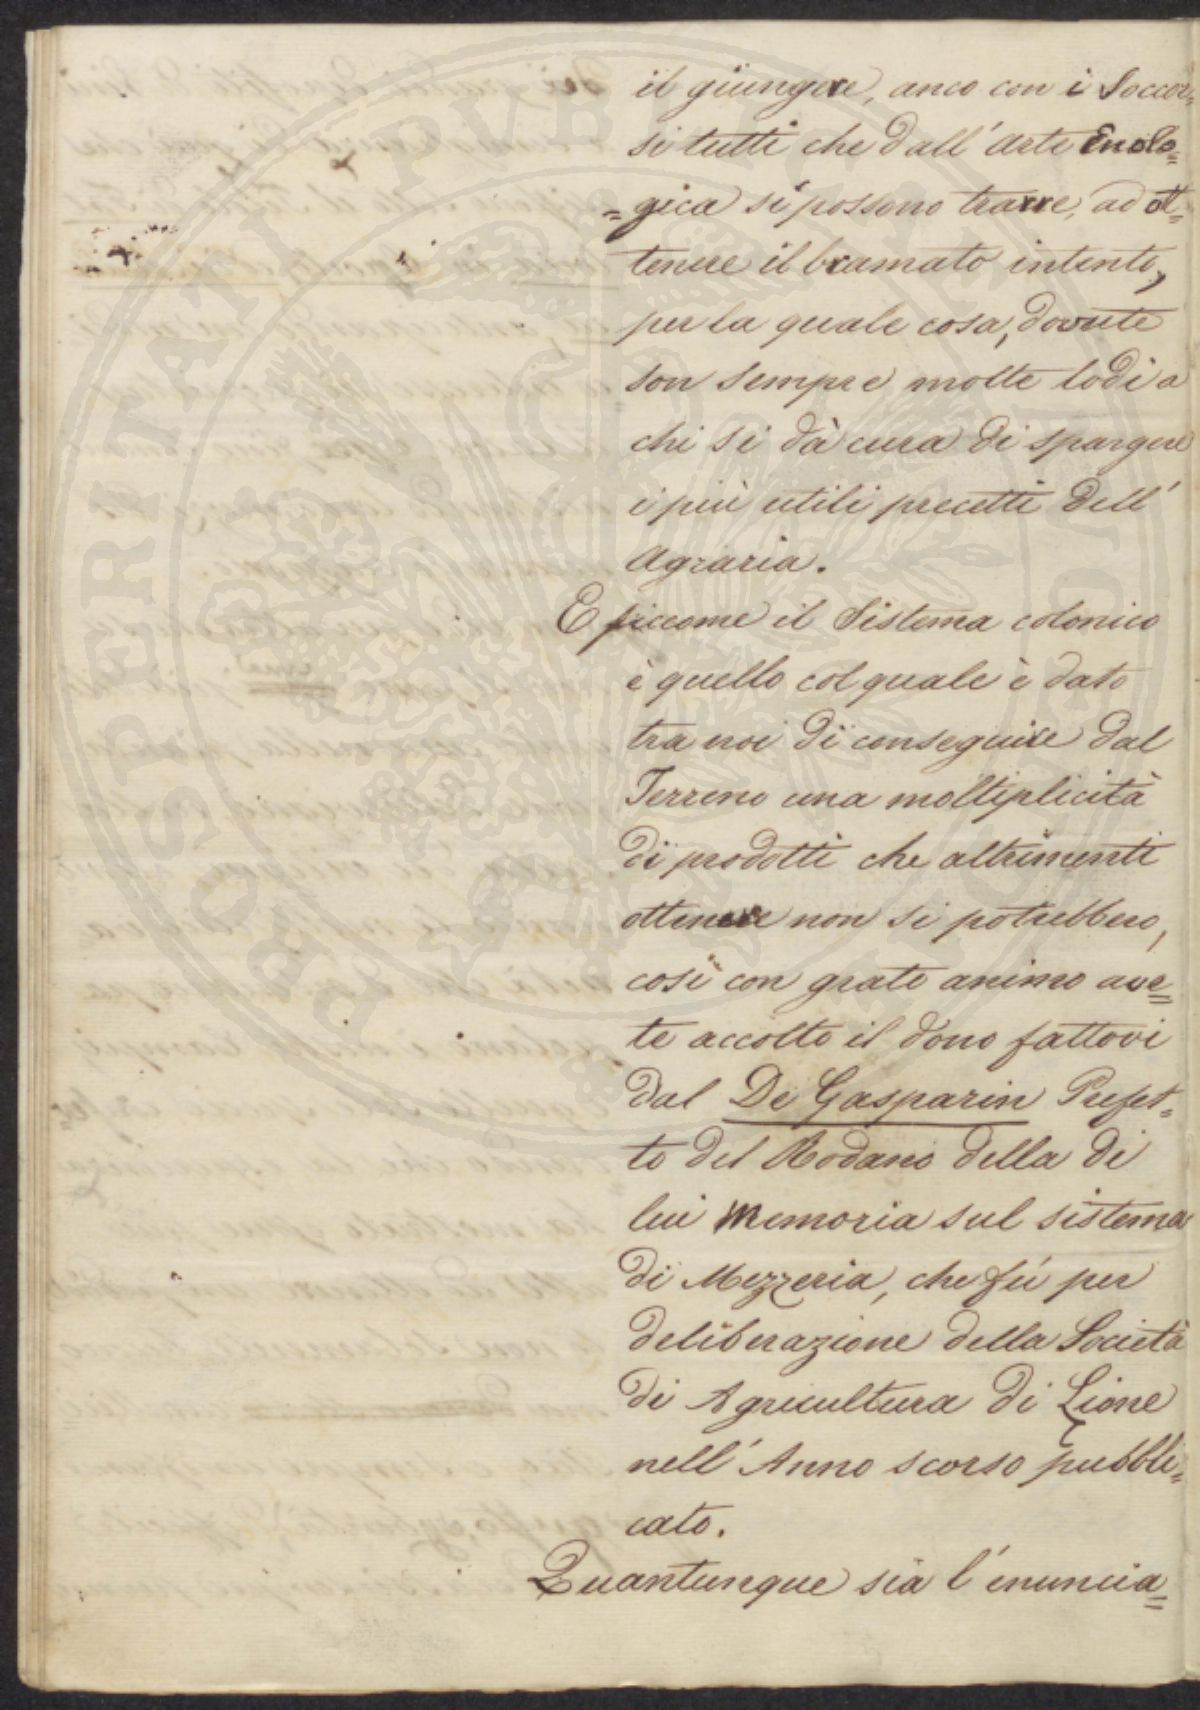 il giungere, anco con i Soccor=
si tutti che dall'Arte Enolo=
=gica si possono trarre, ad ot=
tenere il bramato intento,
per la quale cosa, dovute
son sempre molte lodi a
chi si dà cura di spargere
i più utili precetti dell'
Agraria.
E siccome il Sistema colonico
è quello col quale è dato
tra noi di conseguire dal
Terreno una moltiplicità
di prodotti che altrimenti
ottenere non si potrebbero,
così con grato animo ave=
te accolto il dono fattovi
dal De Gasparin Prefet=
to del Rodano della di
lui Memoria sul sistema
di Mezzeria, che fù per
deliberazione della Società
di Agricultura di Lione
nell'Anno scorso pubbli=
cato.
Quantunque sia l'enuncia=
PROSPERITATI PUBLICAE